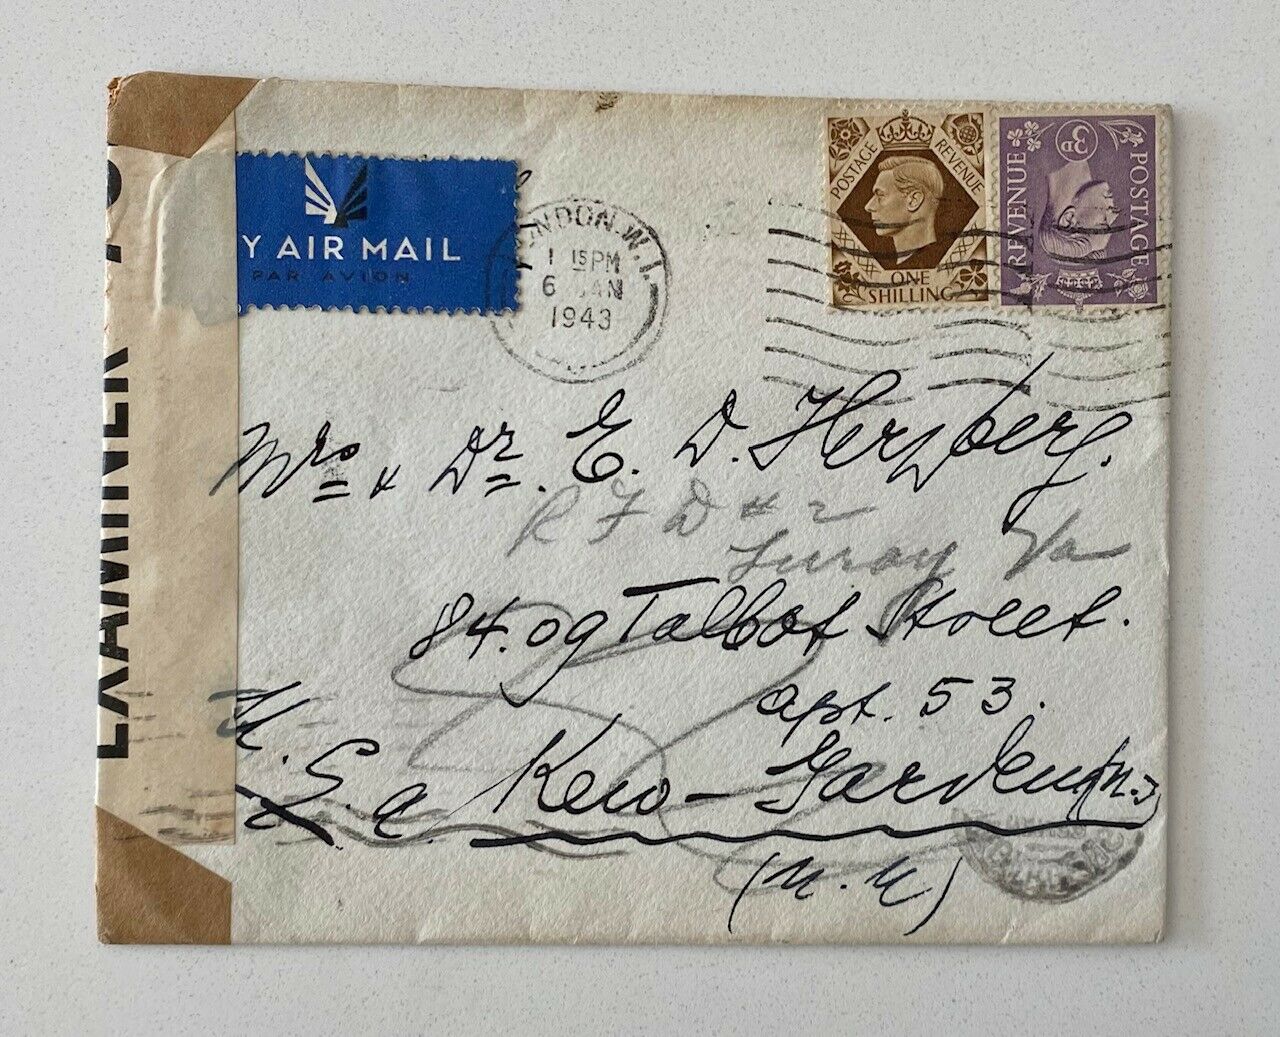 EXAMINER
Y AIR MAIL
PAR AVION
LONDON.W.1.
1 15 PM
6 JAN
1943
POSTAGE REVENUE
ONE
SHILLING
POSTAGE REVENUE
3D
Mrs & Dr. E. D. Herzberg.
R F D # 2
Luray Va
84.09 Talbot Street.
apt. 53.
Kew-Gardens
U.S.a